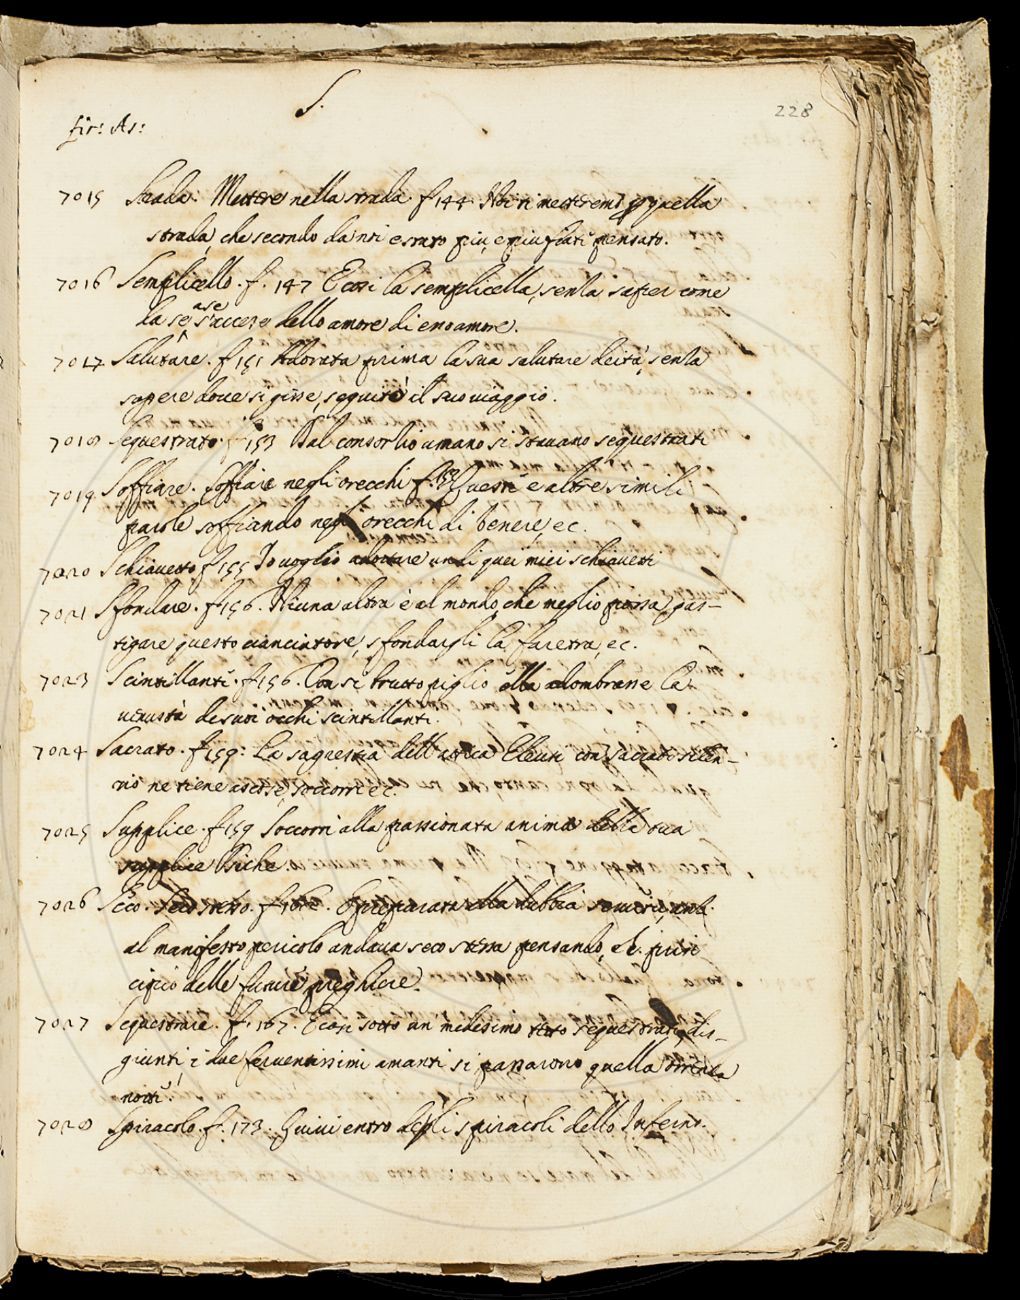 S.
228
fir: As:
7015 Strada. Mettere nella strada f 144 Noi ti metteremo p quella
strada, che secondo da noi e stato più, e più fiate pensato.
7016 Semplicello. f. 147 E cosi la semplicella, senza saper come
da se s'accese dello amore di eno amore.
ase
7017 Salutare. f 151 Adorata prima la sua salutare deità, senza
sapere dove si gisse, seguitò il suo viaggio.
7018 Sequestrato. f 153 Dal consortio umano si stavano sequestrati
7019 Soffiare. Soffiare negli orecchi f. Queste e altre simili
parole soffiando negli orecchi di Venere, ec.
7020 Schiavetto f 155 Io voglio un di quei miei schiavetti
7021 Sfondare. f 156. Niuna altra è al mondo, che meglio possa gas-
tigare questo cianciatore, sfondargli la faretra, ec.
7023 Scintillanti. f 156. Con si brutto piglio adombrasse la
venustà de suoi occhi scintillanti.
7024 Sacrato. f 159: La sagrestia dell' Eleusi con sacrato silen-
zio ne tiene ascose, soccorri ec.
7025 Supplice. f 159 Soccorri alla passionata anima della tua
supplice Psiche.
7026 Seco. Seco stesso. f
al manifesto pericolo andava seco stessa pensando, il prin
cipio delle future preghiere.
7027 Sequestrare. f. 167. E cosi sotto un medesimo tetto sequestrati, e dis-
giunti, i due ferventissimi amanti si passarono quella
notte.
7028 Spiracolo f. 173. Quivi entro degli spiracoli dello Inferno.